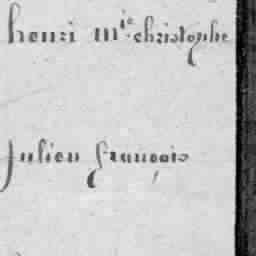 henri m^ie christophe
julien françois